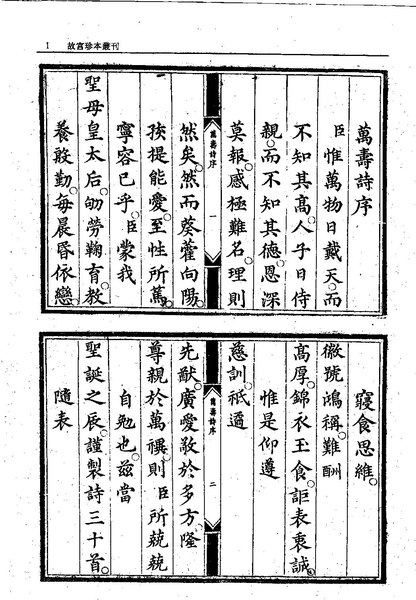 1 故宮珍本叢刊
萬壽詩序
臣惟萬物日戴天。而
不知其高。人子日侍
親。而不知其德。恩深
莫報。感極難名。理則
萬壽詩序 一
然矣。然而葵藿向陽。
孩提能愛。至性所篤。
寧容已乎。臣蒙我
聖母皇太后。劬勞鞠育。教
養殷勤。每晨昏依戀。
寢食思維。
徽號鴻稱。難酬
高厚。錦衣玉食。詎表衷誠。
惟是仰遵
慈訓。祗遹
萬壽詩序 二
先猷。廣愛敬於多方。隆
尊親於萬禩。則臣所兢兢
自勉也。茲當
聖誕之辰。謹製詩三十首。
隨表